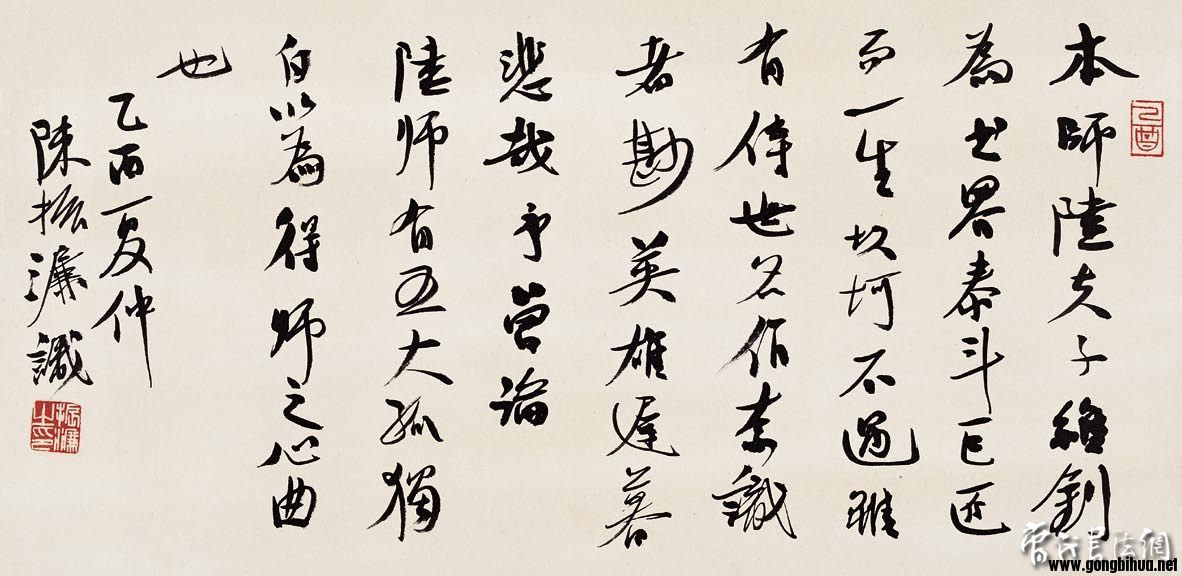 本師陸夫子維釗
為书界泰斗巨匠
而一生坎坷不遇雖
有傳世名作奈識
者尠英雄遲暮
悲哉予曾論
陸师有五大孤獨
自以為得师之心曲
也
乙酉夏仲
陳振濂識
乙酉
振濂之印
书法網
www.gongbihua.net